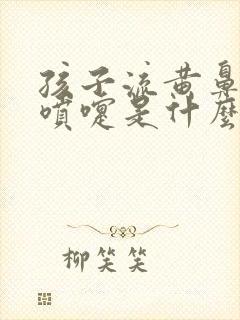 孩子流黄鼻
喷嚏是什麼
柳笑笑